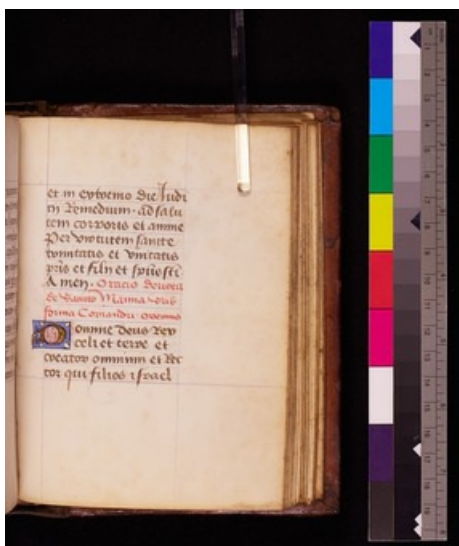 et in extremo die Judi
cii Remedium. ad salu
tem corporis et anime
Per virtutem sancte
trinitatis et vnitatis
pris et filii et spus sti
Amen. Oracio deuota
de Manna
forma Coriandri
Domine deus Rex
celi et terre et
creator omnium et Rec
tor qui filios israel